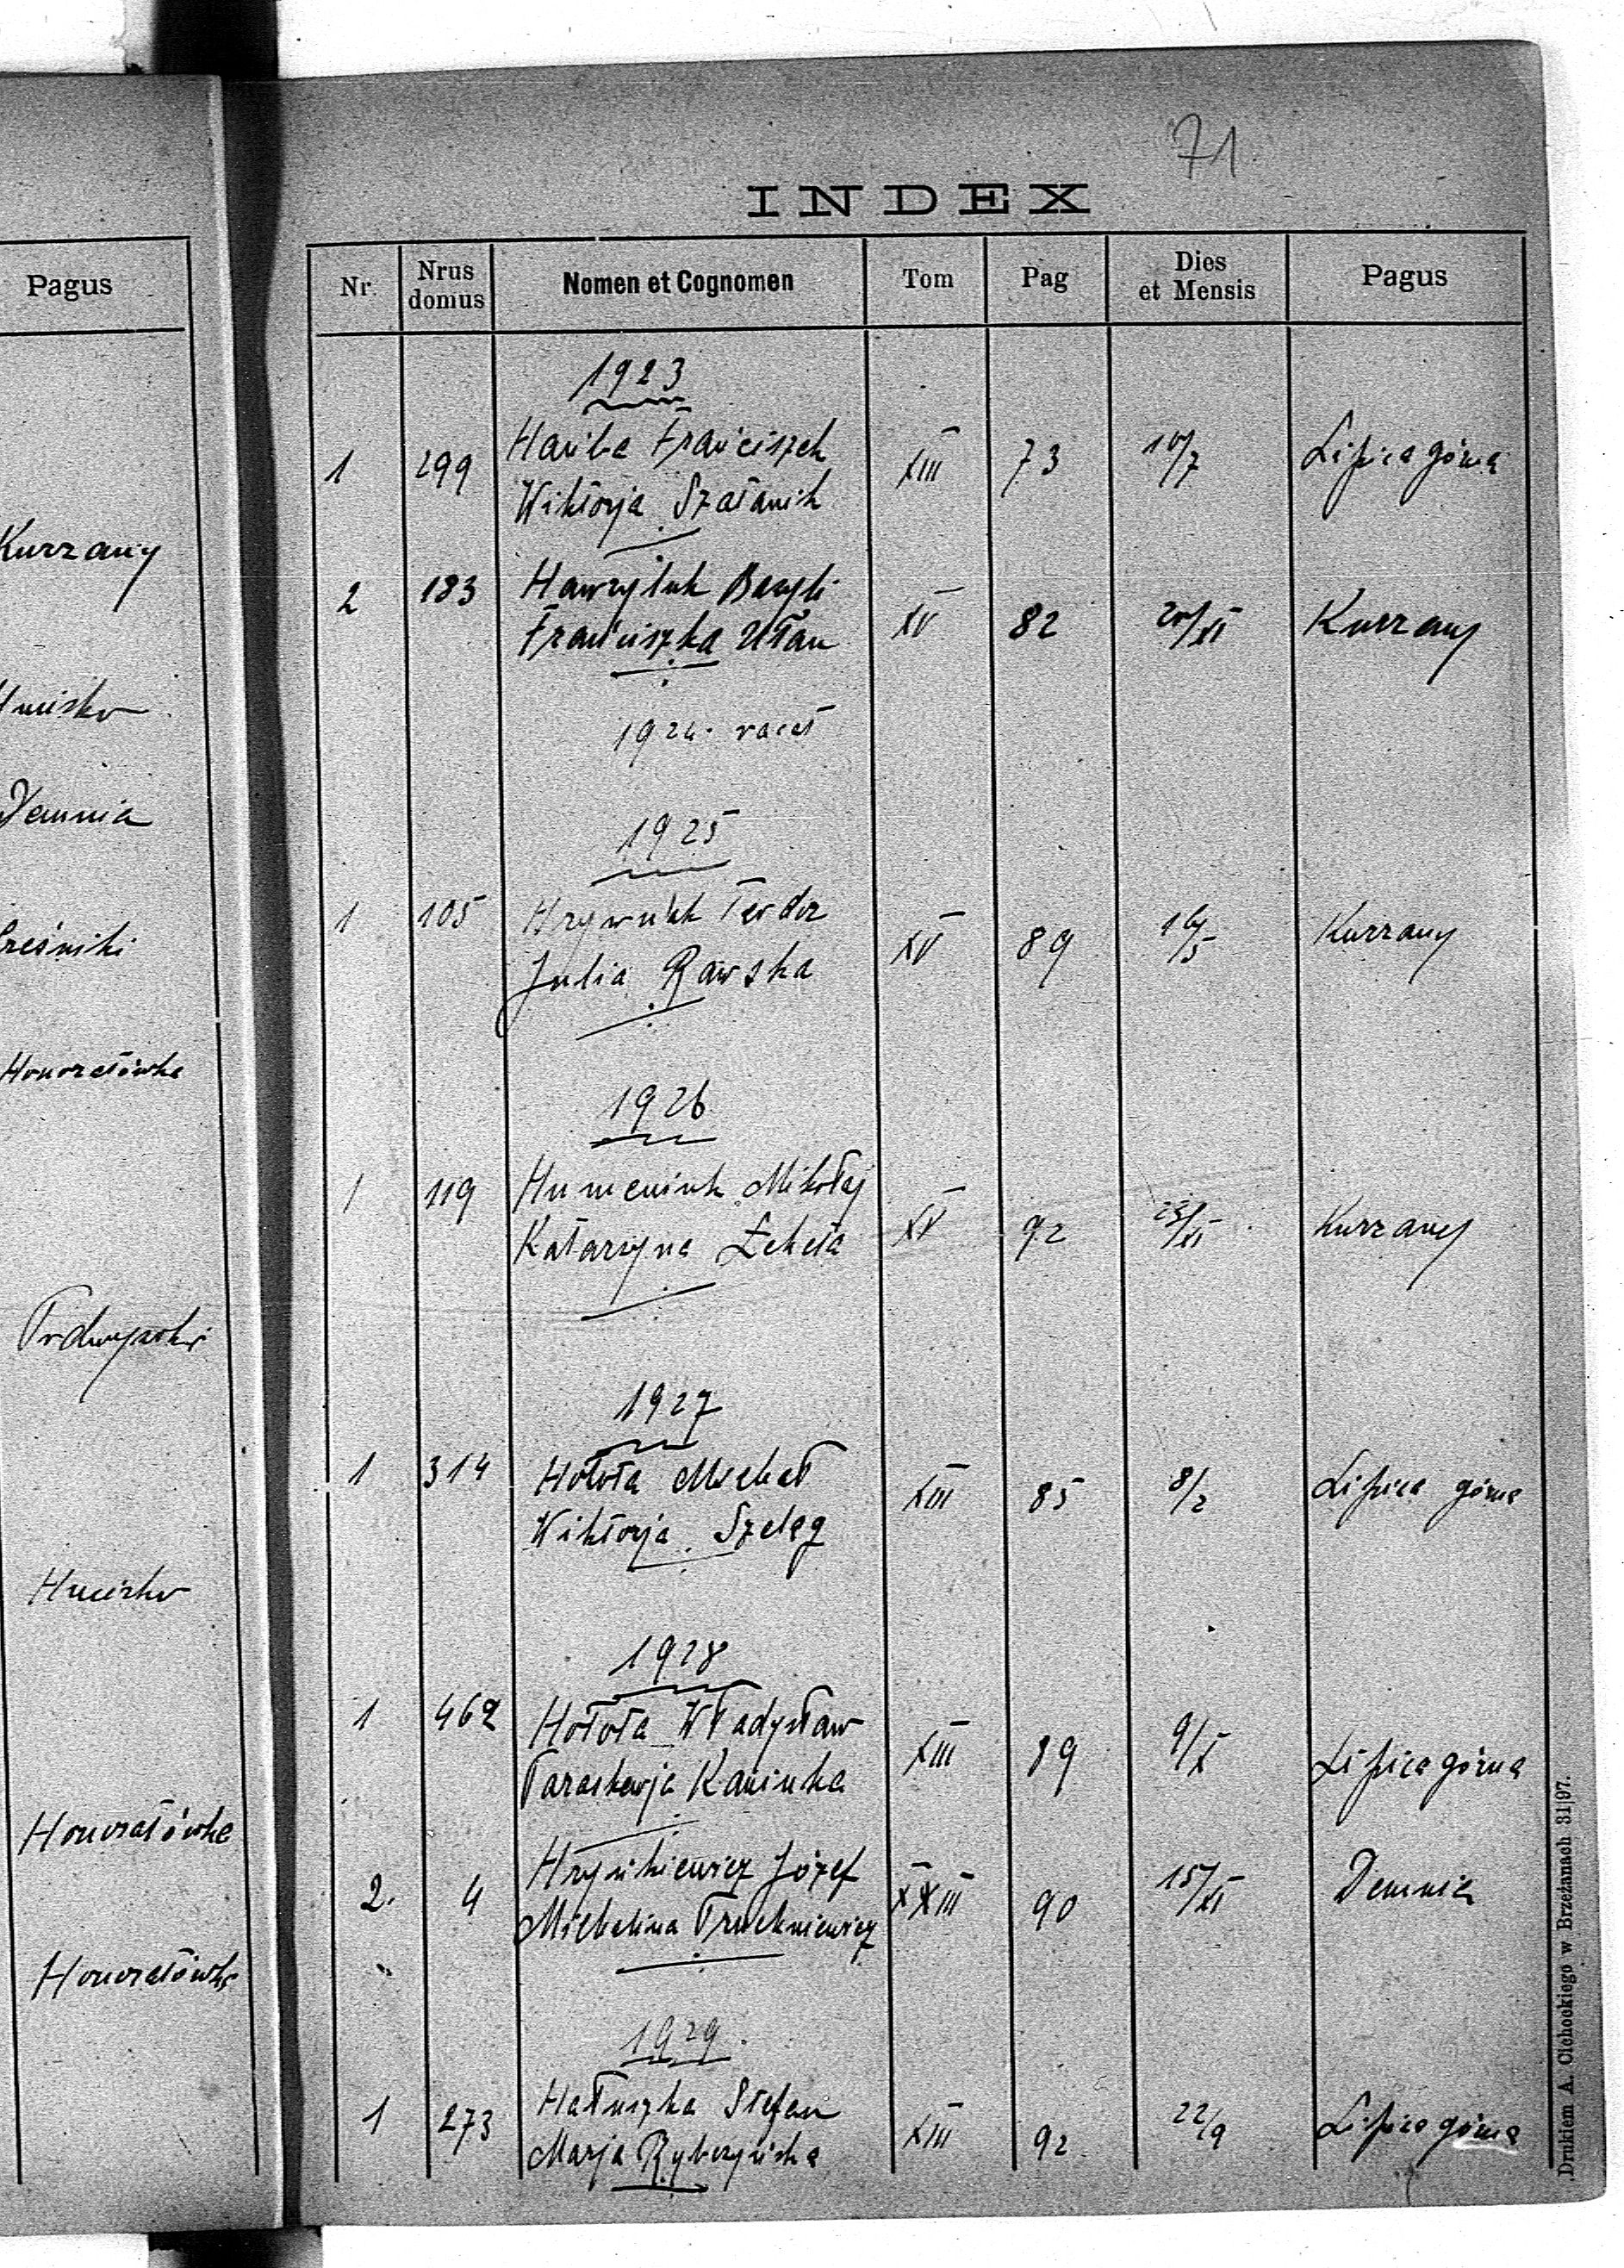 Pagus
Kurzany
Demnia
Honoratówka
Honoratówka
Honoratówka
71
INDEX
Nr. Nrus domus Nomen et Cognomen Tom Pag Dies et Mensis Pagus
1923
1 299 Franciszek XIII 73 10/7 Lipica górna
Wiktorja
2 183 Hawryluk Bazyli XV 82 20/XI Kurzany
Franciszka Ułan
1924. vacat
1925
1 105 Teodor XV 89 16/5 Kurzany
Julia Rawska
1926
1 119 Humeniuk Mikołaj XV 92 Kurzany
Katarzyna
1927
1 314 Hołota Michał XIII 85 8/2 Lipica górna
Wiktorja Szeląg
1928
1 462 Hołota Władysław XIII 89 9/X Lipica górna
Paraskewja Kaminska
2. 4 Hryńkiewicz Józef XXIII 90 15/XI Demnia
Michalina
1929.
1 273 Hałuszka Stefan XIII 92 22/9 Lipica górna
Marja Rybczyńska
Drukiem A. Cichockiego w Brzeżanach 31|97.